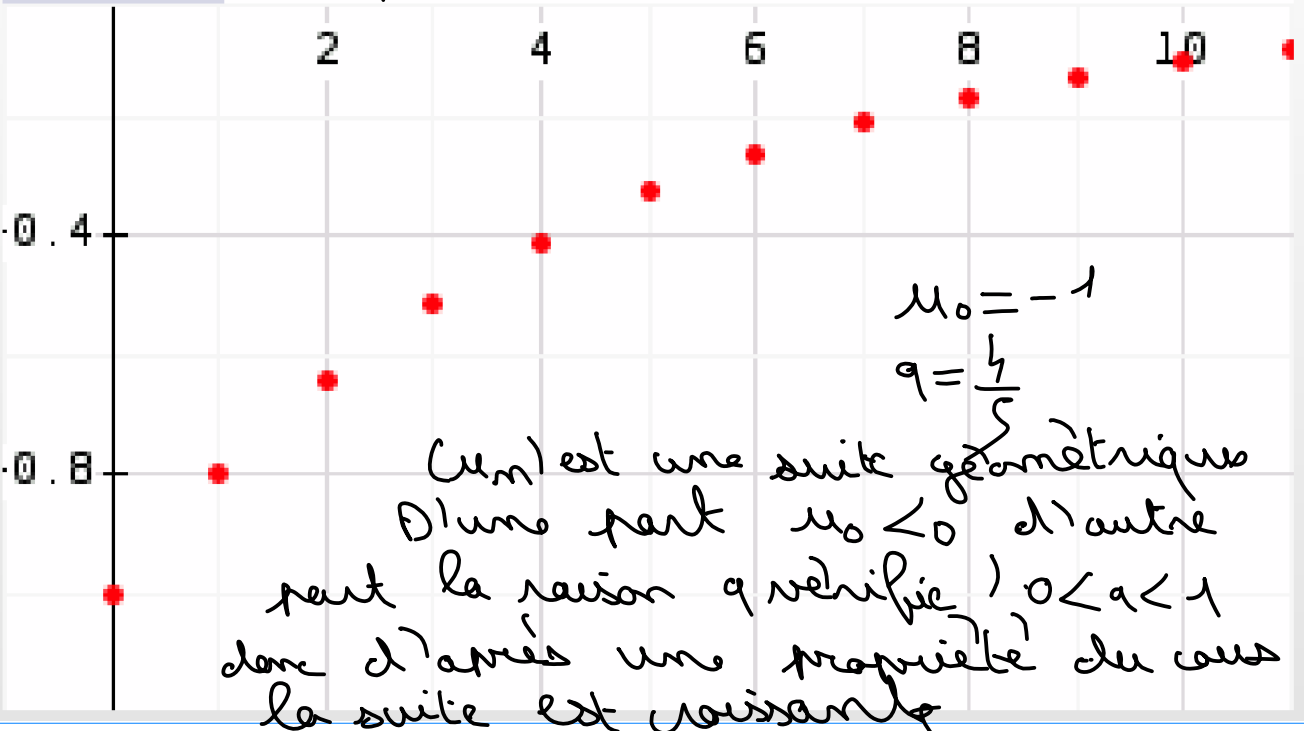 2 4 6 8 10
-0.4
u₀ = -1
q = 4/5
-0.8
(un) est une suite géométrique
D'une part u₀ < 0 d'autre
part la raison q vérifie 0 < q < 1
donc d'après une propriété du cours
la suite est croissante